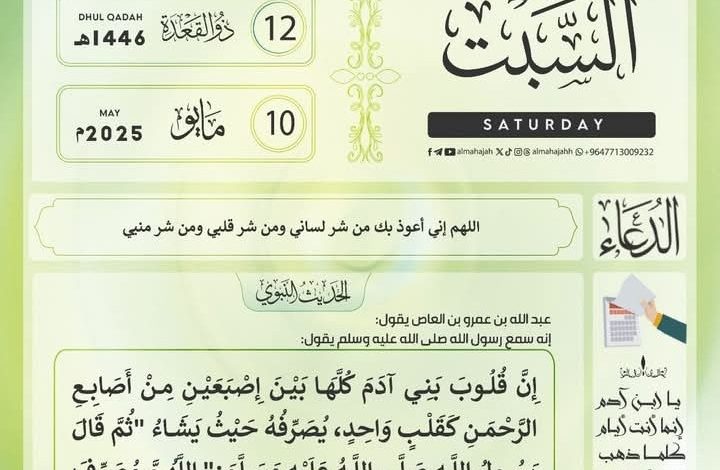 السَّبْت
SATURDAY
almahajah almahajahh +9647713009232
DHUL QADAH
1446هـ
ذُو القَعْدَة
12
MAY
2025م
مَايو
10
الدُعَاء
اللهم إني أعوذ بك من شر لساني ومن شر قلبي ومن شر منيي
الحَدِيثُ النَّبَوِي
عبد الله بن عمرو بن العاص يقول:
إنه سمع رسول الله صلى الله عليه وسلم يقول:
إِنَّ قُلُوبَ بَنِي آدَمَ كُلَّهَا بَيْنَ إِصْبَعَيْنِ مِنْ أَصَابِعِ
الرَّحْمَنِ كَقَلْبٍ وَاحِدٍ، يُصَرِّفُهُ حَيْثُ يَشَاءُ "ثُمَّ قَالَ
يا ابن آدم
إنما أنت أيام
كلما ذهب